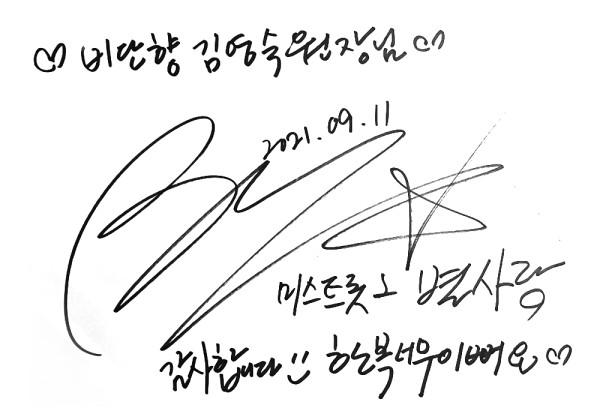 ♡ 비단향 김영숙원장님 ♡
2021.09.11
미스트롯2 별사랑
감사합니다 :) 한복너무이뻐요 ♡